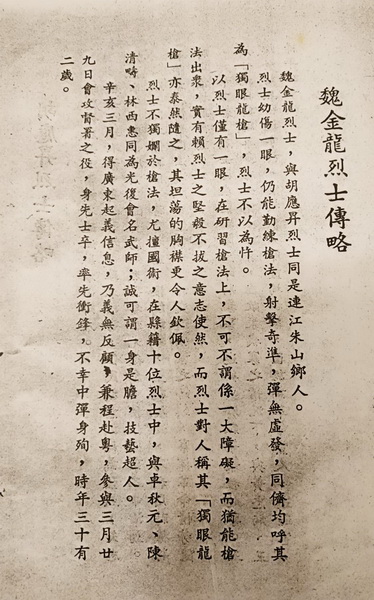 魏金龍烈士傳略
魏金龍烈士，與胡應昇烈士同是連江朱山鄉人。
烈士幼傷一眼，仍能勤練槍法，射擊奇準，彈無虛發，同儕均呼其
為「獨眼龍槍」，烈士不以為忤。
以烈士僅有一眼，在研習槍法上，不可不謂係一大障礙，而猶能槍
法出衆，實有賴烈士之堅毅不拔之意志使然，而烈士對人稱其「獨眼龍
槍」亦泰然隨之，其坦蕩的胸襟更令人欽佩。
烈士不獨嫻於槍法，尤擅國術，在縣籍十位烈士中，與卓秋元、陳
清疇、林西惠同為光復會名武師；誠可謂一身是膽，技藝超人。
辛亥三月，得廣東起義信息，乃義無反顧，兼程赴粵，參與三月廿
九日會攻督署之役，身先士卒，率先衝鋒，不幸中彈身殉，時年三十有
二歲。